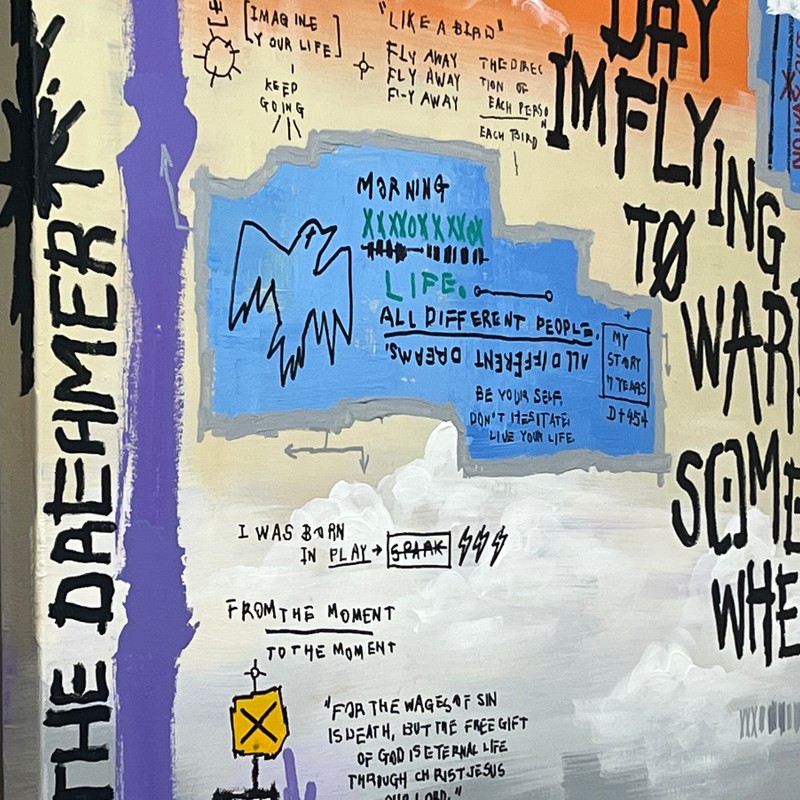 [IMAGINE
YOUR LIFE]
KEEP
GOING
"LIKE A BIRD"
FLY AWAY
FLY AWAY
FLY AWAY
THE DIREC
TION OF
EACH PERSON
EACH BIRD
DAY
I'M FLYING
TØ
WAR
SOME
WHE
THE DREAMER
MORNING
XXXXOXXXXOX
LIFE.
ALL DIFFERENT PEOPLE.
ALL DIFFERENT DREAMS.
BE YOUR SELF,
DON'T HESITATE
LIVE YOUR LIFE
MY
STORY
7 YEARS
D+454
I WAS BORN
IN PLAY → SPARK
FROM THE MOMENT
TO THE MOMENT
"FOR THE WAGES OF SIN
IS DEATH, BUT THE FREE GIFT
OF GOD IS ETERNAL LIFE
THROUGH CHRIST JESUS
OUR LORD."